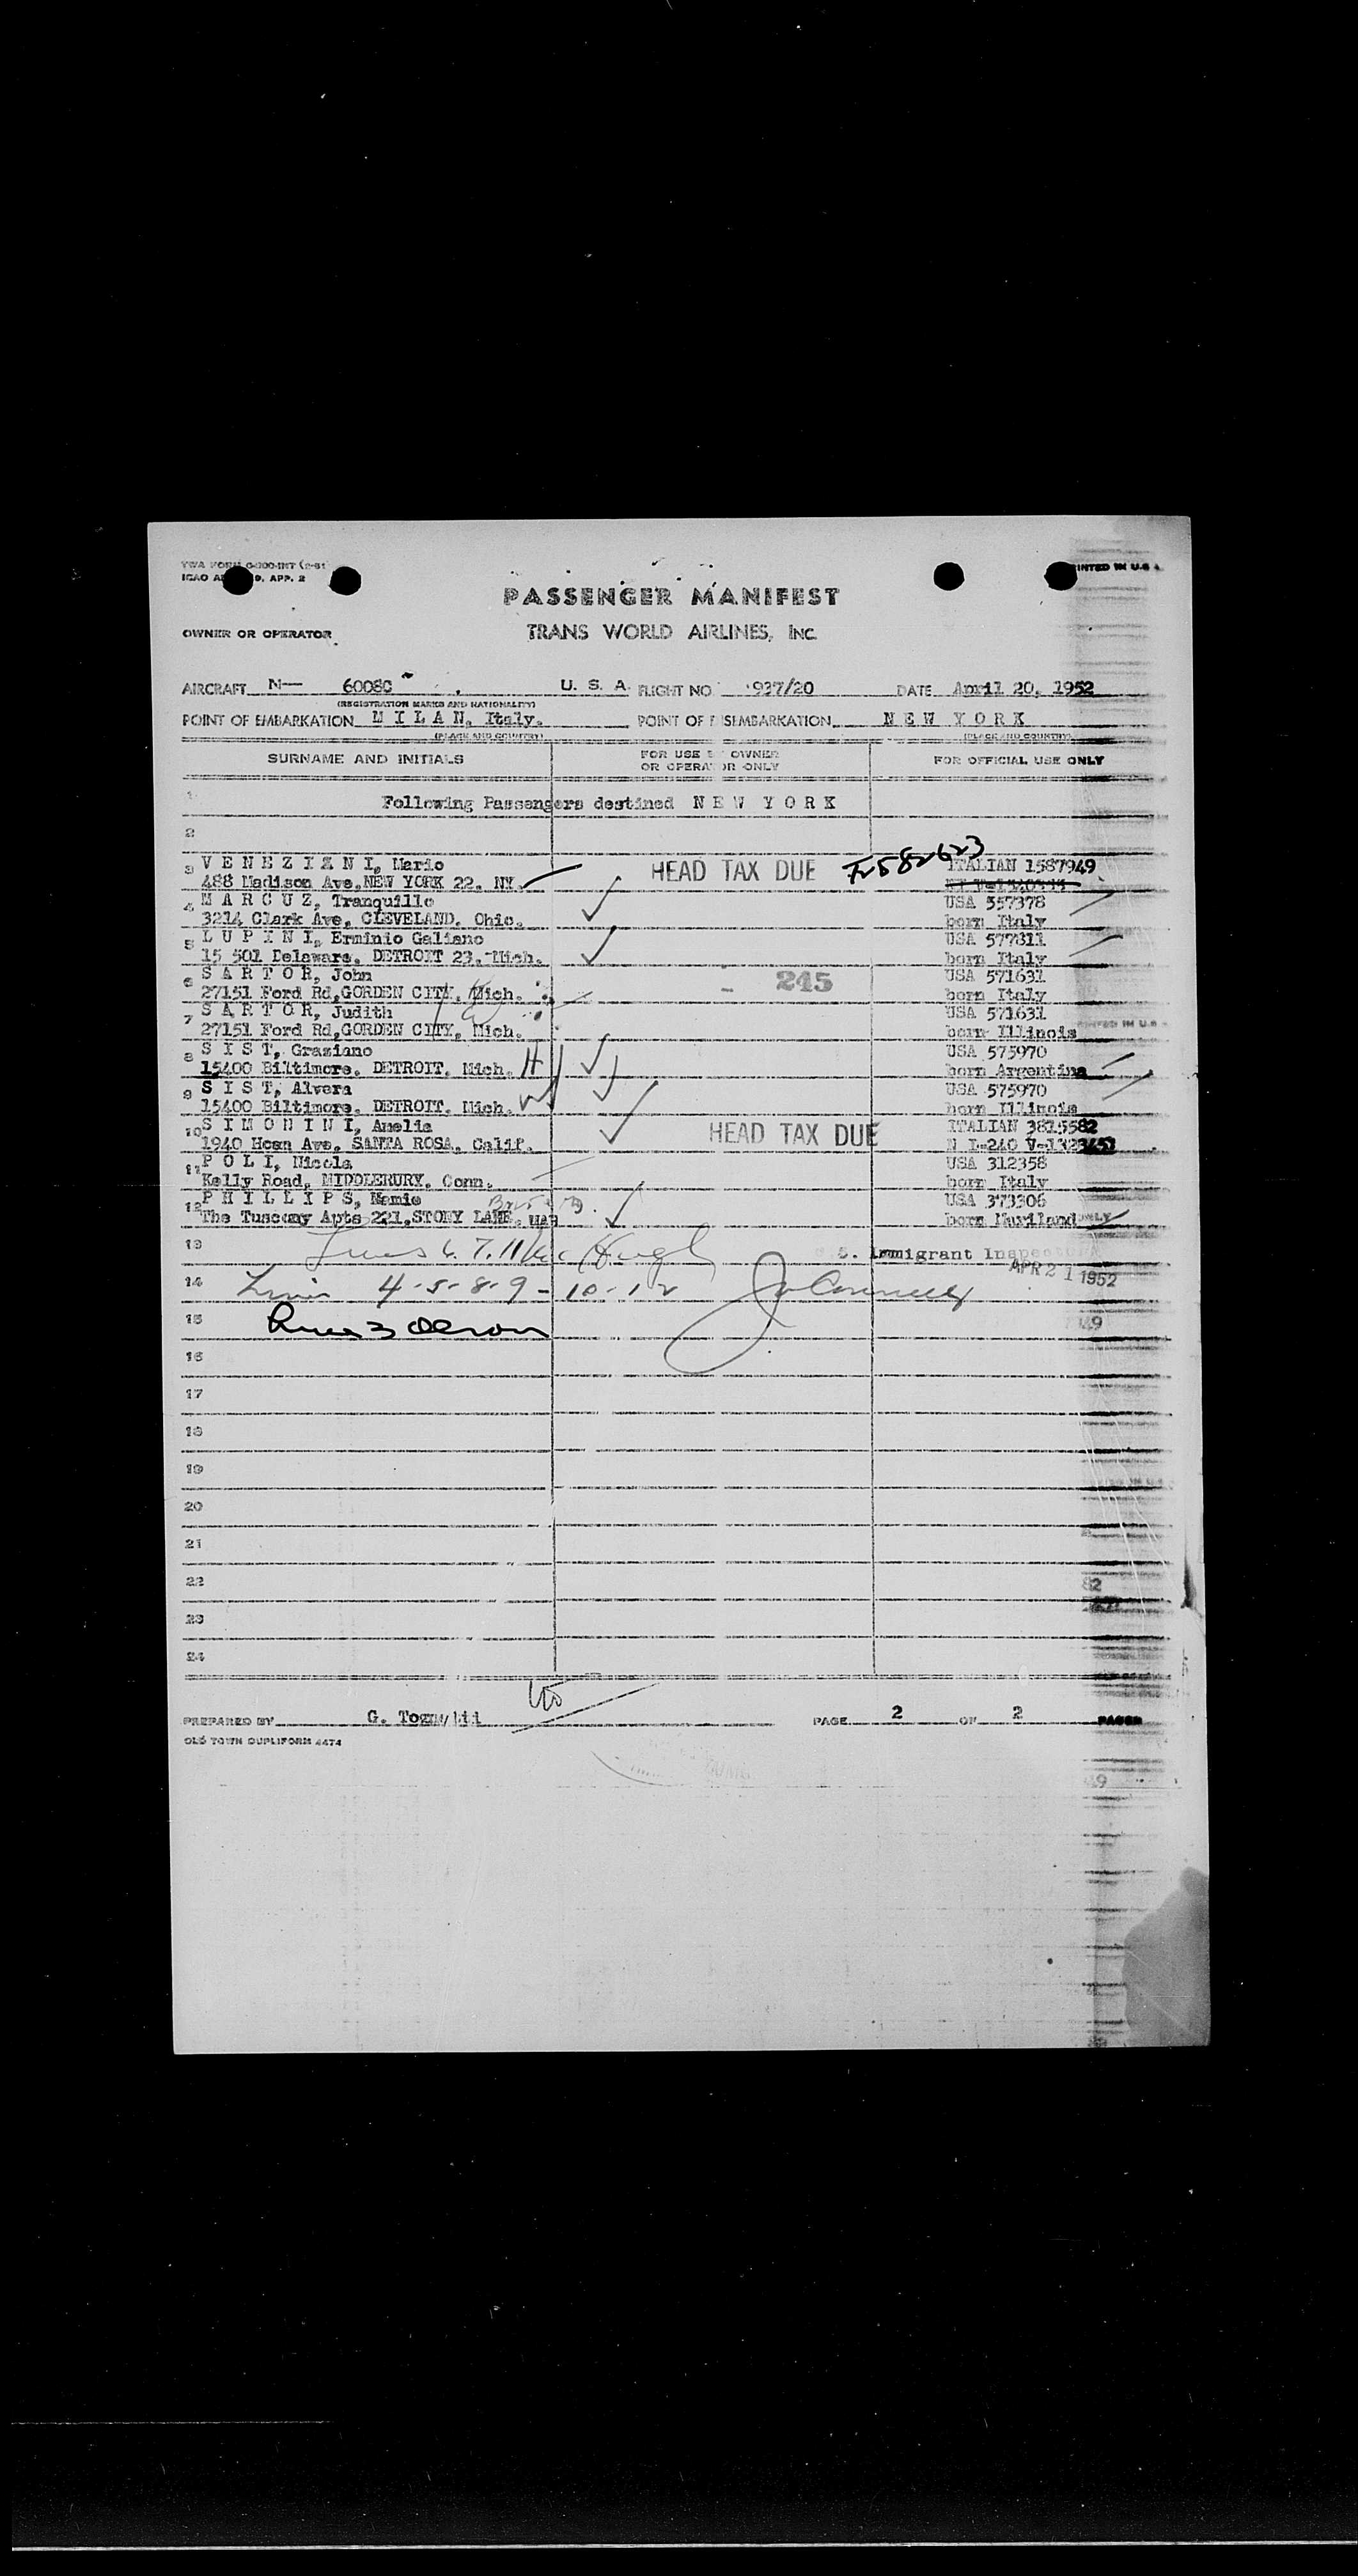 TWA FORM O-300-INT (2-51
ICAO A 9, APP. 2
PRINTED IN U.S.A.
PASSENGER MANIFEST
OWNER OR OPERATOR
TRANS WORLD AIRLINES, INC.
AIRCRAFT N— 6008C U. S. A. FLIGHT NO 927/20 DATE April 20, 1952
(REGISTRATION MARKS AND NATIONALITY)
POINT OF EMBARKATION M I L A N, Italy. POINT OF DISEMBARKATION N E W Y O R K
(PLACE AND COUNTRY) (PLACE AND COUNTRY)
SURNAME AND INITIALS FOR USE BY OWNER OR OPERATOR ONLY FOR OFFICIAL USE ONLY
1 Following Passengers destined N E W Y O R K
2
3 V E N E Z I A N I, Mario HEAD TAX DUE ITALIAN 1587949
488 Madison Ave, NEW YORK 22. NY.
4 M A R C U Z, Tranquillo USA 557378
3214 Clark Ave, CLEVELAND, Ohio. born Italy
5 L U P I N I, Erminio Galiano USA 577811
15 501 Delaware, DETROIT 23. Mich. born Italy
6 S A R T O R, John 245 USA 571631
27151 Ford Rd, GORDEN CITY, Mich. born Italy
7 S A R T O R, Judith USA 571631
27151 Ford Rd, GORDEN CITY, Mich. born Illinois
8 S I S T, Graziano USA 575970
15400 Biltimore, DETROIT. Mich. born Argentina
9 S I S T, Alvera USA 575970
15400 Biltimore, DETROIT. Mich. born Illinois
10 S I M O N I N I, Amelia HEAD TAX DUE ITALIAN 3815582
1940 Hoen Ave, SANTA ROSA, Calif. N I-240 V-1323451
11 P O L I, Nicola USA 312358
Kelly Road, MIDDLEBURY, Conn. born Italy
12 P H I L L I P S, Mamie USA 373306
The Tuscany Apts 221, STONY LANE, born Muriland
13 6. 7. 11 McHugh
Immigrant Inspector
APR 21 1952
14 4-5-8-9-10-12
15
16
17
18
19
20
21
22
23
24
PREPARED BY G. PAGE 2 OF 2 PAGES
OLD TOWN DUPLIFORM 4474